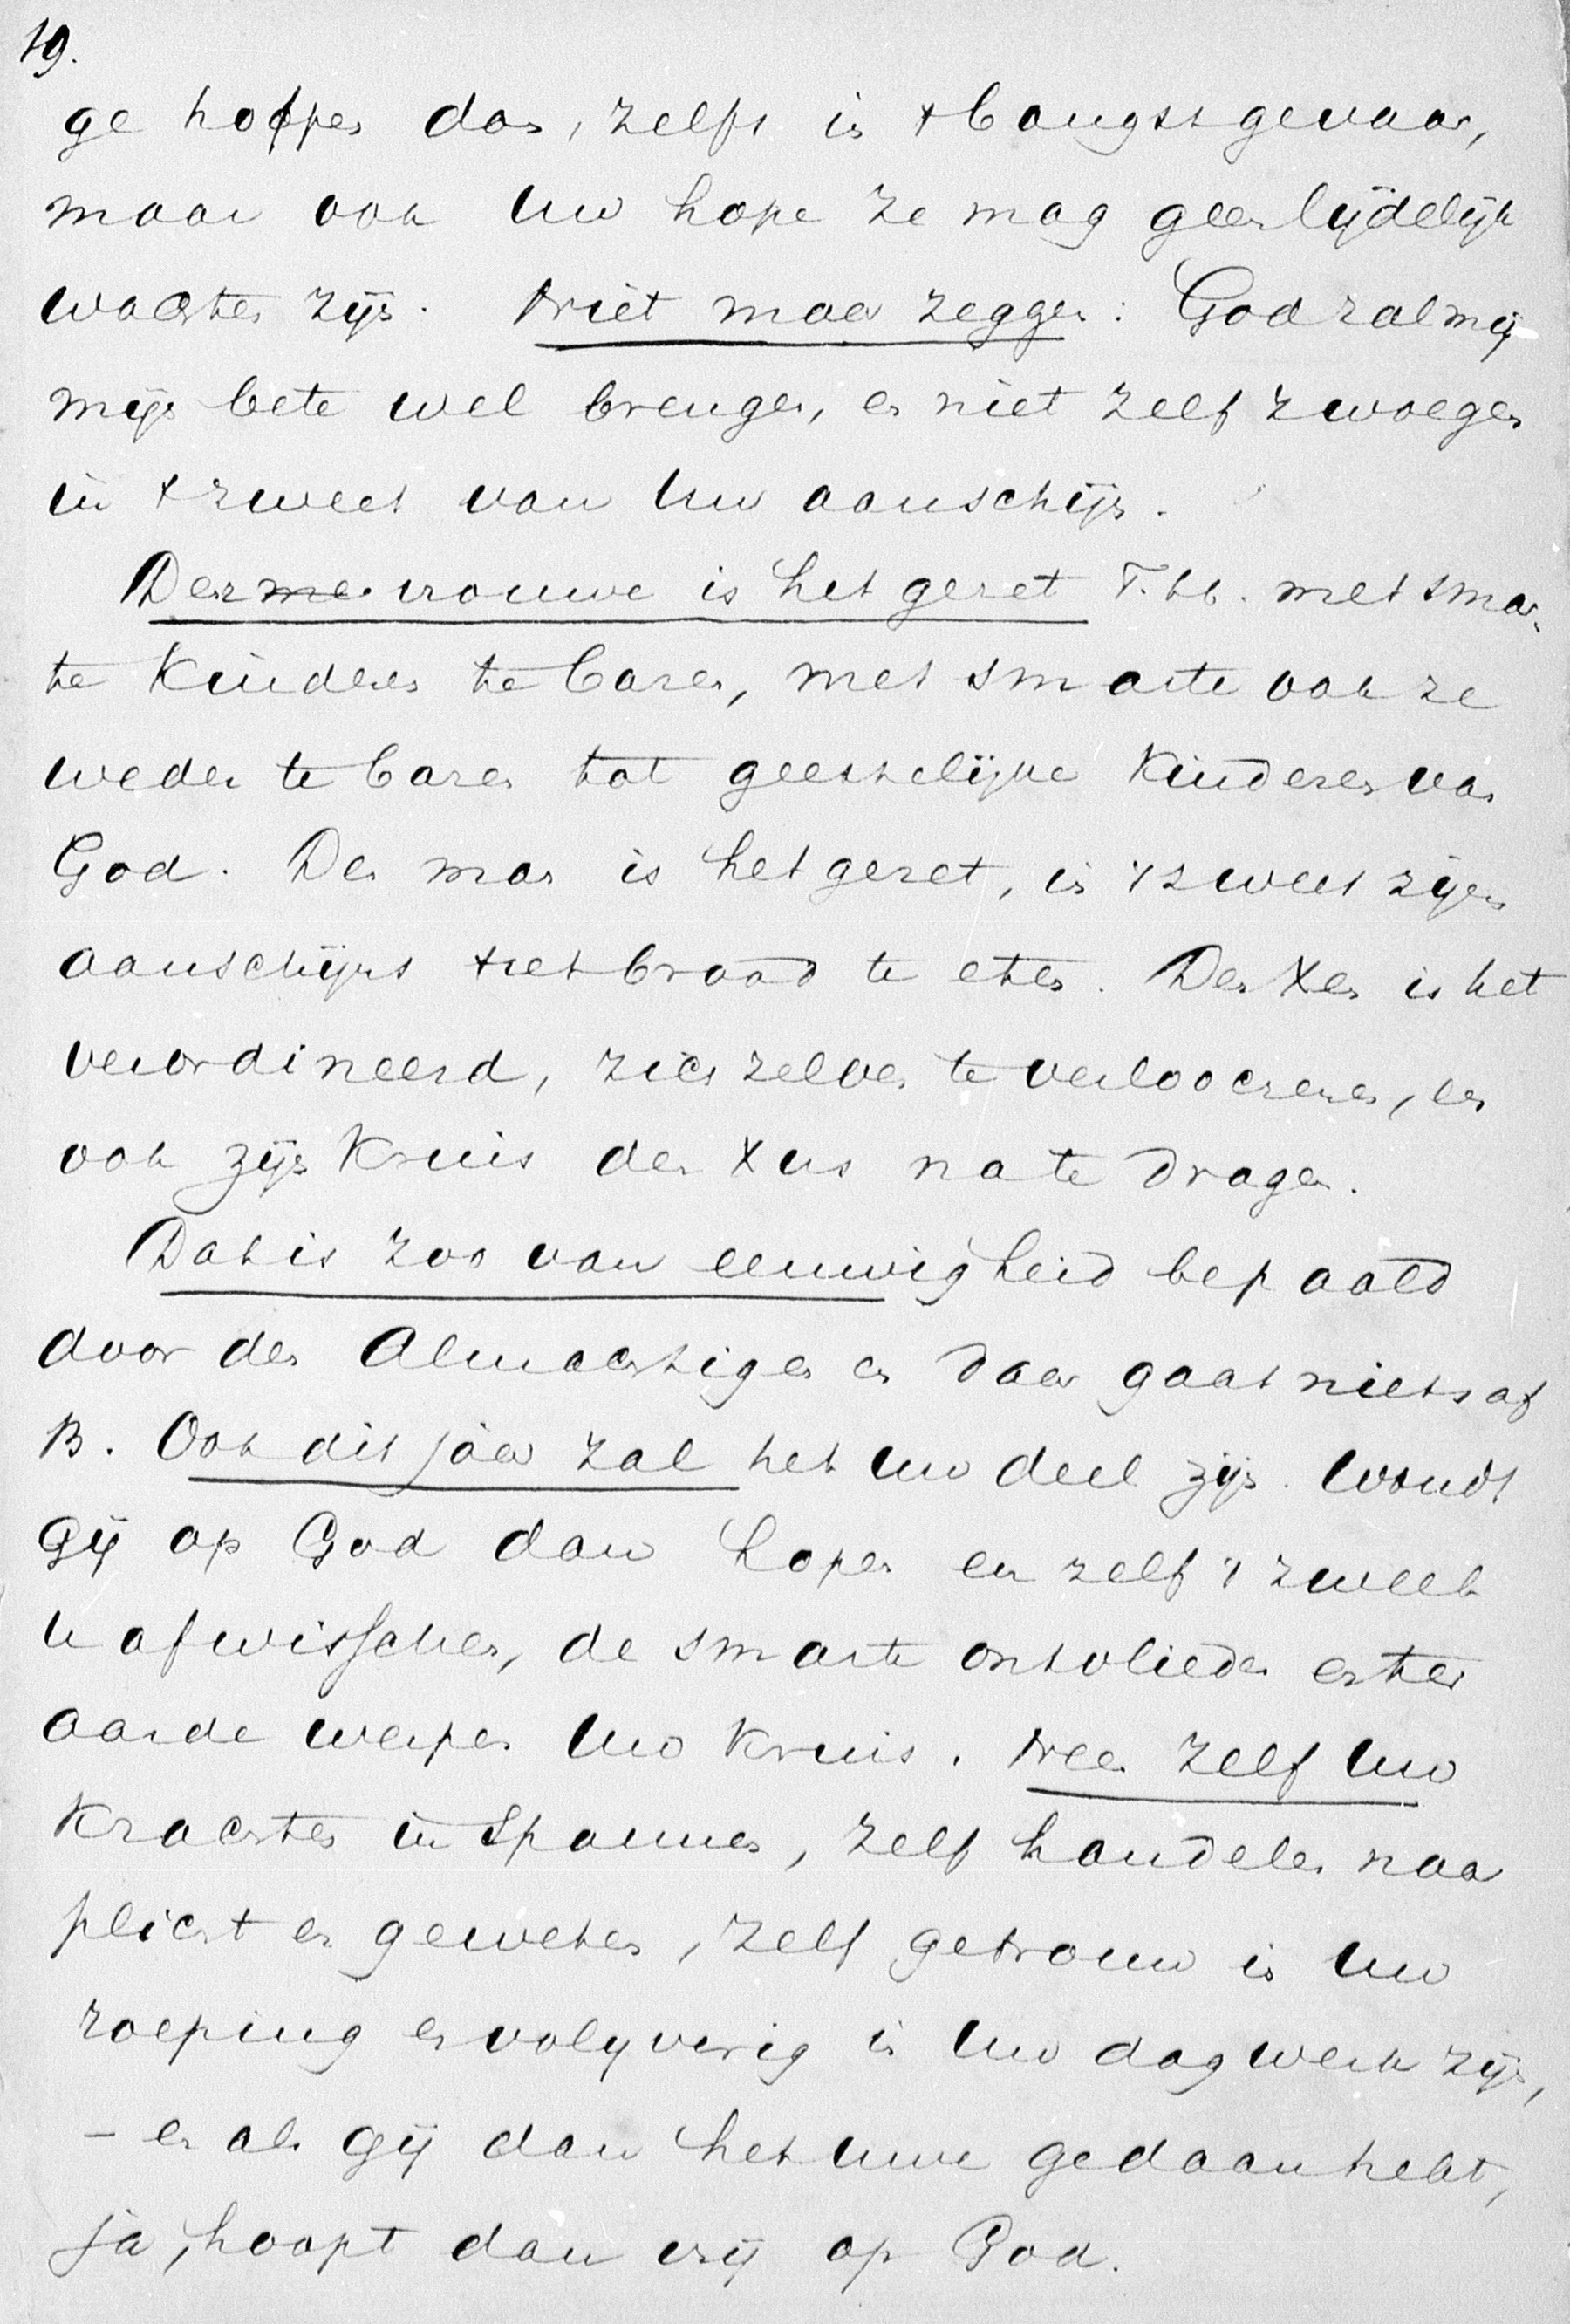 19.
ge hoppen dan, zelfs in 't bangst gevaar,
maar ook Uw hope ze mag geen lijdelijk
wachten zijn. Niet maar zeggen: God zal mij
mijn bete wel brengen, en niet zelf zwoegen
in 't zweet van Uw aanschijn.
Den vrouwe is het gezet T. bb. met smar-
te Kinderen te baren, met smarte ook ze
weder te baren tot geestelijke Kinderen van
God. Den man is het gezet, in 't zweet zijns
aanschijns het brood te eten. Den Xen is het
verordineerd, zich zelven te verloochenen, en
ook zijn Kruis den Xus na te dragen.
Dat is zoo van eeuwigheid bepaald
door den Almachtigen en daar gaat niets af
B. Ook dit jaar zal het Uw deel zijn. Woudt
Gij op God dan hopen en zelf 't zweet
U afwisschen, de smarte ontvlieden en ter
aarde werpen Uw Kruis. Neen zelf Uw
Krachten in spannen, zelf handelen naar
plicht en geweten, zelf getrouw in Uw
roeping en volijverig in Uw dagwerk zijn,
- en als Gij dan het Uwe gedaan hebt,
ja, hoopt dan vrij op God.